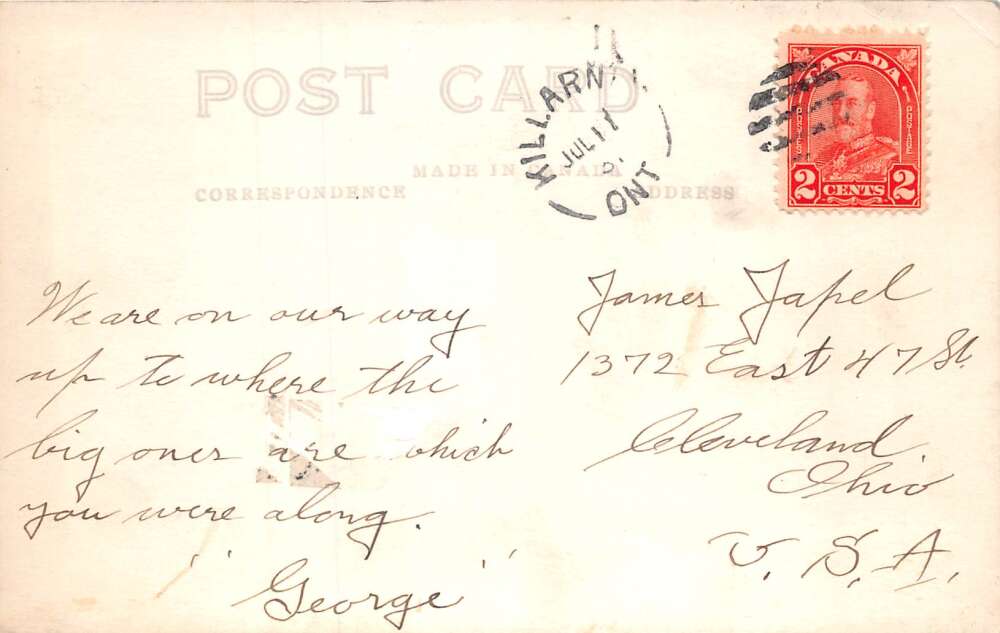 POST CARD
MADE IN CANADA
CORRESPONDENCE
ADDRESS
KILLARN
JUL 11
ONT
CANADA
POSTES
POSTAGE
2 CENTS 2
We are on our way
up to where the
big ones are which
you were along.
"George"
James Japel
1372 East 47 St.
Cleveland
Ohio
U. S. A.